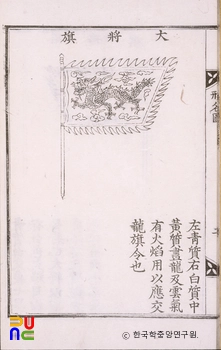 大將旗
左青質右白質中
黃質畫龍及雲氣
有火焰用以應交
龍旗令也
ⓒ 한국학중앙연구원.